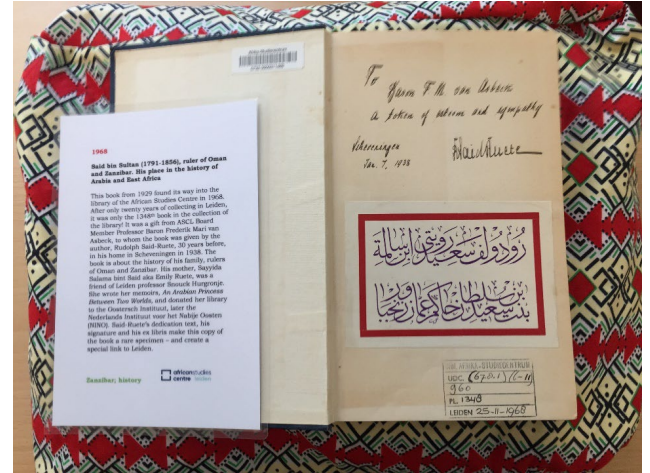 1968
Said bin Sultan (1791-1856), ruler of Oman
and Zanzibar. His place in the history of
Arabia and East Africa
This book from 1929 found its way into the
library of the African Studies Centre in 1968.
After only twenty years of collecting in Leiden,
it was only the 1348th book in the collection of
the library! It was a gift from ASCL Board
Member Professor Baron Frederik Mari van
Asbeck, to whom the book was given by the
author, Rudolph Said-Ruete, 30 years before,
in his home in Scheveningen in 1938. The
book is about the history of his family, rulers
of Oman and Zanzibar. His mother, Sayyida
Salama bint Said aka Emily Ruete, was a
friend of Leiden professor Snouck Hurgronje.
She wrote her memoirs, An Arabian Princess
Between Two Worlds, and donated her library
to the Oostersch Instituut, later the
Nederlands Instituut voor het Nabije Oosten
(NINO). Said-Ruete's dedication text, his
signature and his ex libris make this copy of
the book a rare specimen – and create a
special link to Leiden.
Zanzibar; history
africanstudies
centre leiden
To
Baron F. M. van Asbeck
a token of esteem and sympathy
Scheveningen
Jan. 7, 1938
RSaid-Ruete
UDC (678.1) (6-11)
960
PL. 1348
LEIDEN 25-11-1968